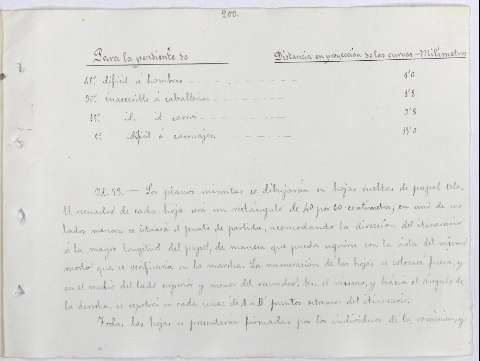 200.
Para la pendiente de Distancia en proyección de las curvas - Milímetros
45º difícil á hombres 1'0
30º inaccesible á caballerías 1'8
15º id. á carros 3'8
5º difícil á carruajes
Art. 52. — Los planos minutas se dibujarán en hojas sueltas de papel tela.
El recuadro de cada hoja será un rectángulo de 40 por 60 centímetros; en uno de sus
lados menores se situará el punto de partida, acomodando la dirección del itinerario
á la mayor longitud del papel, de manera que pueda seguirse con la vista del mismo
modo que se verificaría en la marcha. La numeración de las hojas se colocará fuera, y
en el medio del lado superior y menor del recuadro. En el mismo, y hacia el ángulo de
la derecha, se repetirá en cada una: de A a B puntos extremos del itinerario.
Todas las hojas se presentarán firmadas por los individuos de la comisión, y